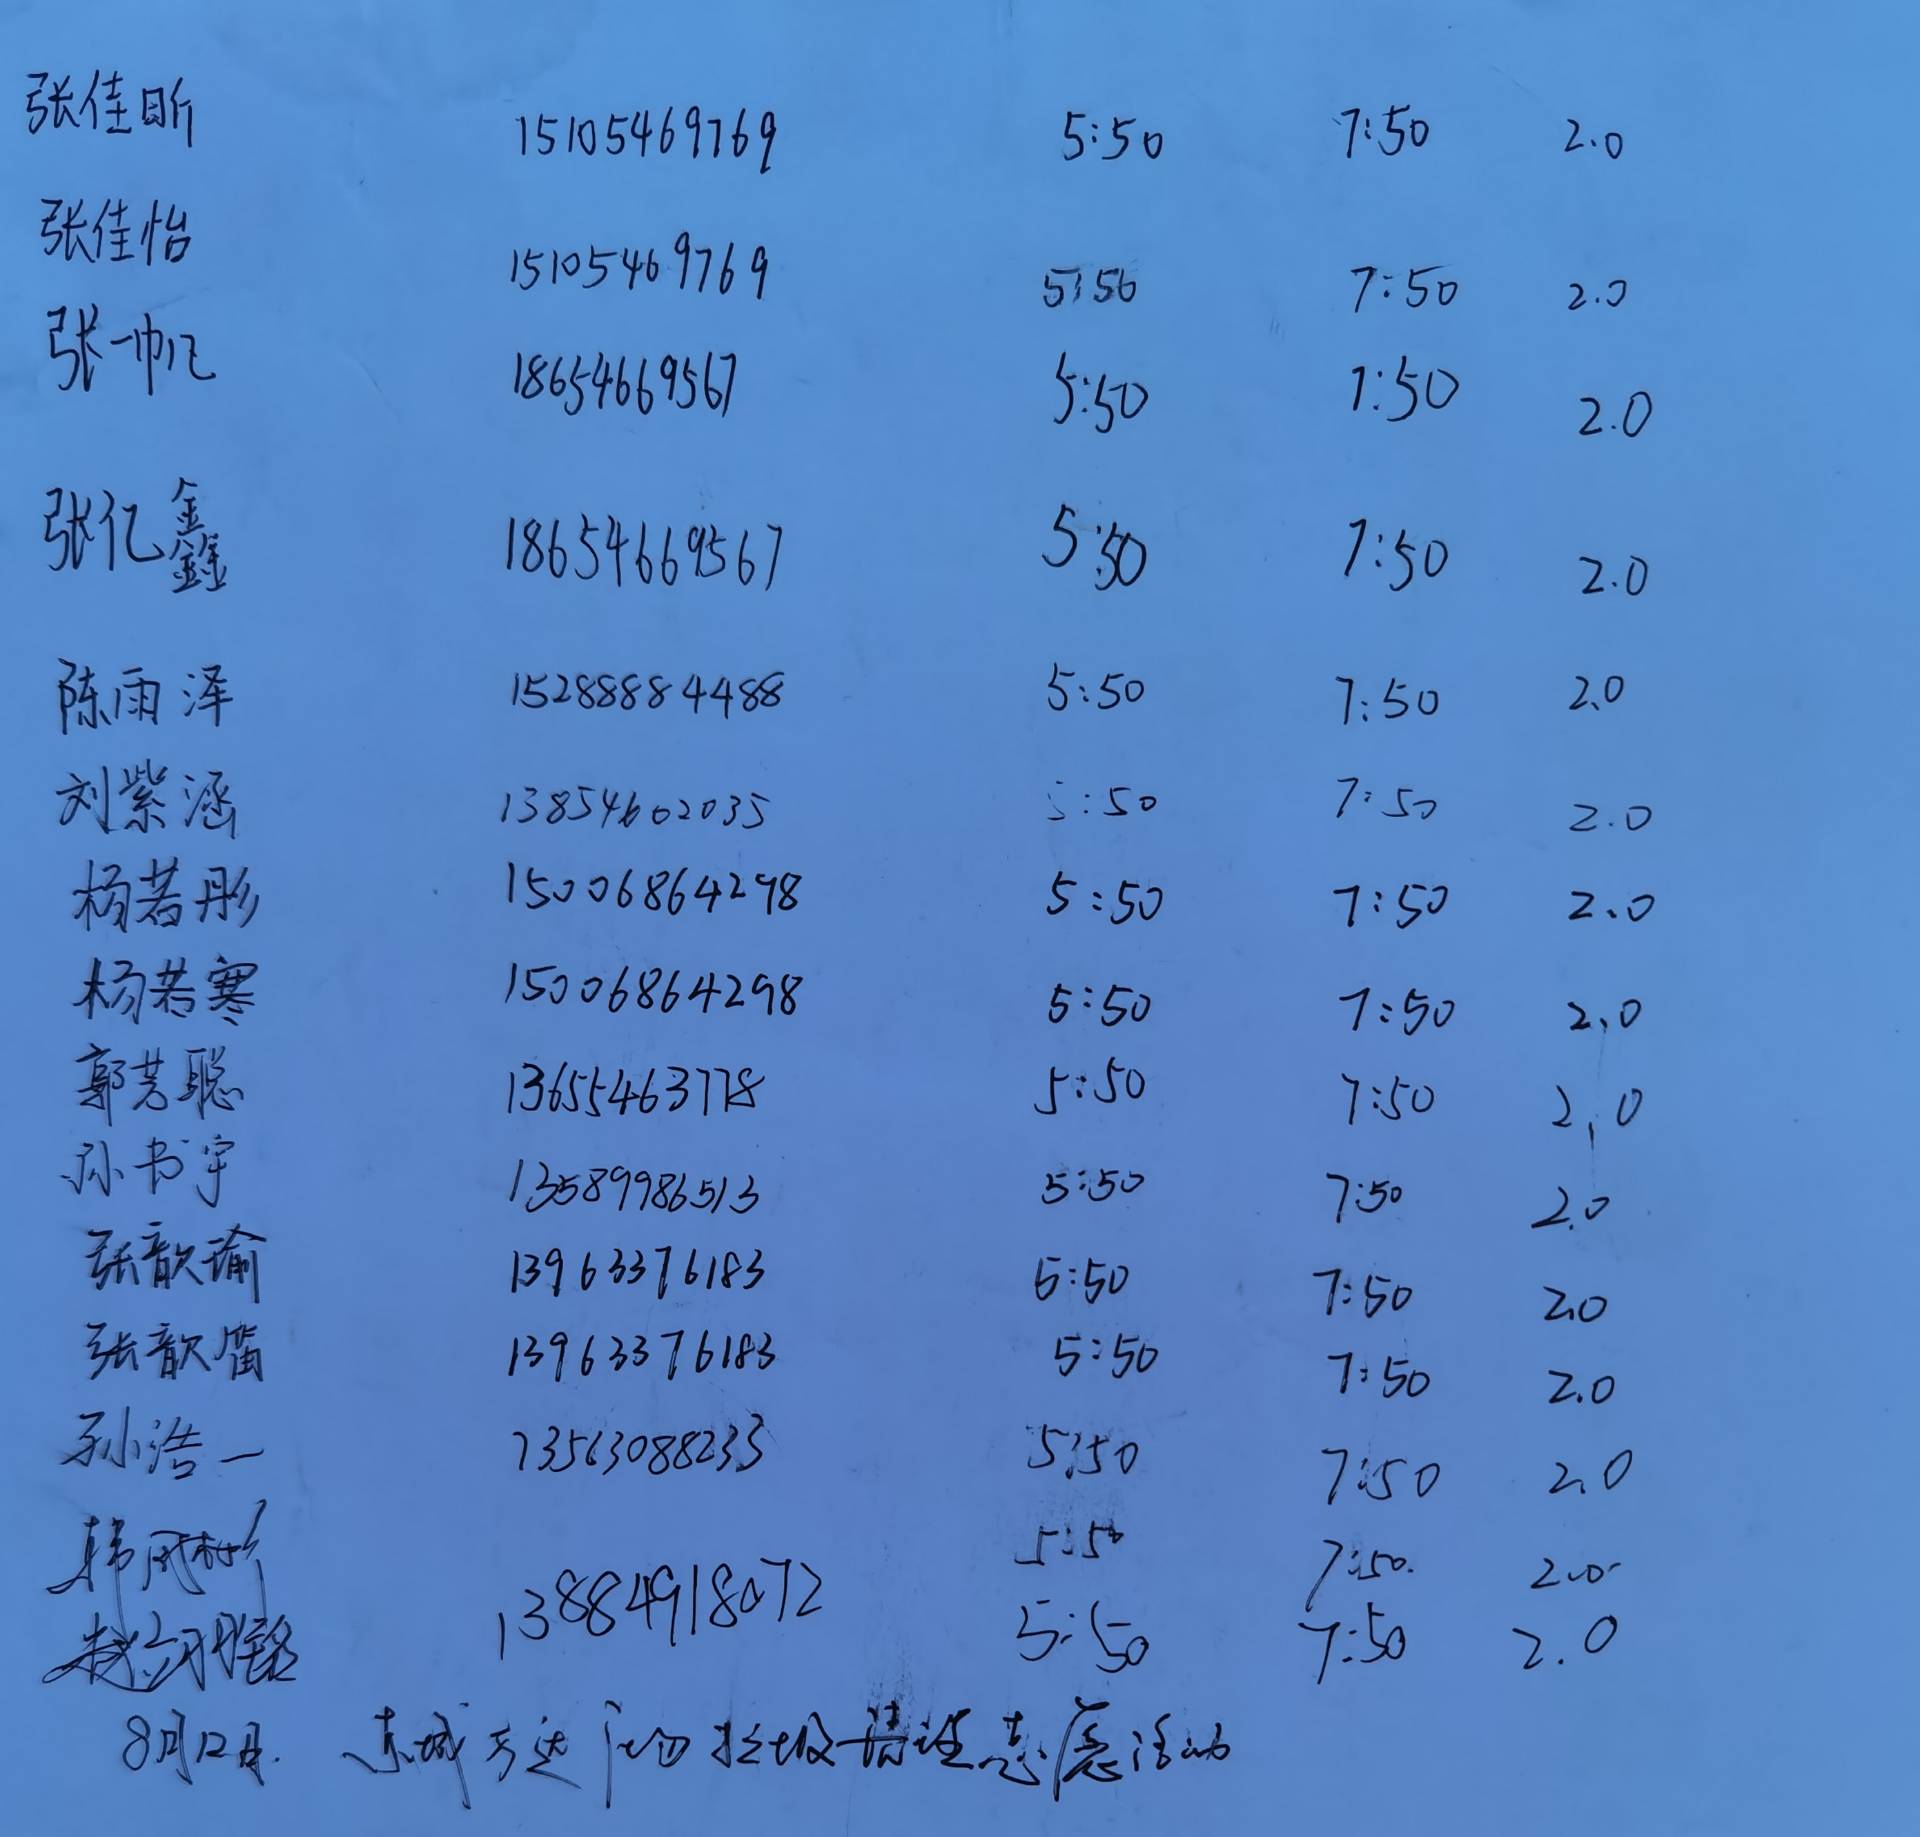 张佳昕 15105469769 5:50 7:50 2.0
张佳怡 15105469769 5:50 7:50 2.0
张一帆 18654669567 5:50 7:50 2.0
张亿鑫 18654669567 5:50 7:50 2.0
陈雨泽 15288884488 5:50 7:50 2.0
刘紫涵 13854602035 5:50 7:50 2.0
杨若彤 15006864298 5:50 7:50 2.0
杨若寒 15006864298 5:50 7:50 2.0
郭芸聪 13655463778 5:50 7:50 2.0
孙书宇 13589986513 5:50 7:50 2.0
张歆瑜 13963376183 5:50 7:50 2.0
张歆 13963376183 5:50 7:50 2.0
孙浩一 13563088233 5:50 7:50 2.0
韩 5:50 7:50. 2.0
13884918072 5:50 7:50 2.0
8月12日. 东城万达广场垃圾清理志愿活动